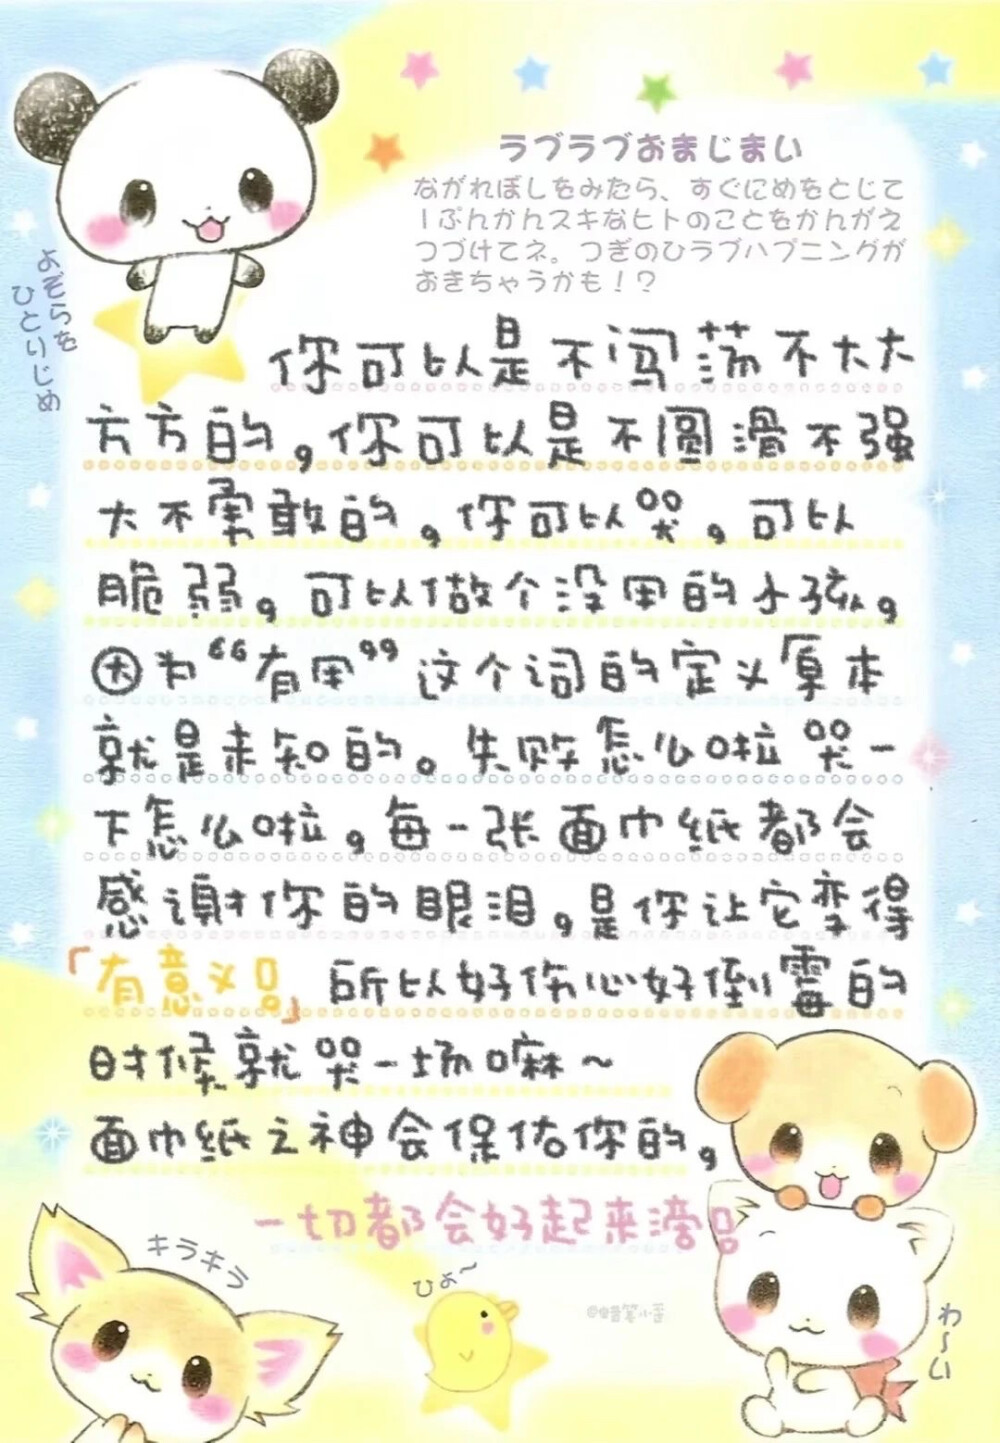 ラブラブおまじまい
ながれぼしをみたら、すぐにめをとじて
1ぷんかんスキなヒトのことをかんがえ
つづけてネ。つぎのひラブハプニングが
おきちゃうかも!?
よぞらを
ひとりじめ
你可以是不闯荡不大大
方方的,你可以是不圆滑不强
大不勇敢的,你可以哭,可以
脆弱。可以做个没用的小孩。
因为“有用”这个词的定义原本
就是未知的。失败怎么啦哭一
下怎么啦。每一张面巾纸都会
感谢你的眼泪。是你让它变得
「有意义」 所以好伤心好倒霉的
时候就哭一场嘛~
面巾纸之神会保佑你的。
一切都会好起来滂
キラキラ
ひよ~
わ~い